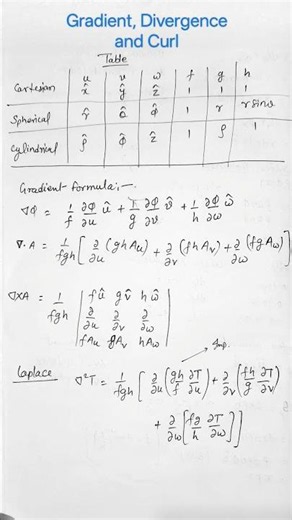 Gradient, Divergence
and Curl
Table
u v w f g h
Cartesian x̂ ŷ ẑ 1 1 1
Spherical r̂ θ̂ φ̂ 1 r r sinθ
Cylindrical ρ̂ φ̂ ẑ 1 ρ 1
Gradient formula:—
∇Φ = 1/f ∂Φ/∂u û + 1/g ∂Φ/∂v v̂ + 1/h ∂Φ/∂w ŵ
∇·A = 1/fgh [ ∂/∂u (ghAu) + ∂/∂v (fhAv) + ∂/∂w (fgAw) ]
∇×A = 1/fgh | fû gv̂ hŵ |
| ∂/∂u ∂/∂v ∂/∂w |
| fAu gAv hAw |
Imp.
Laplace ∇²T = 1/fgh [ ∂/∂u (gh/f ∂T/∂u) + ∂/∂v (fh/g ∂T/∂v)
+ ∂/∂w [fg/h ∂T/∂w] ]